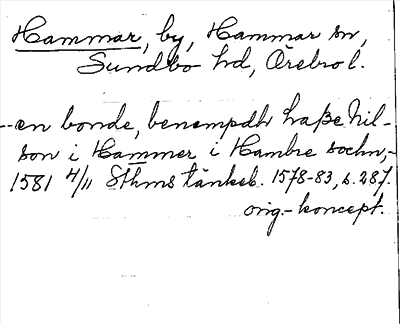 Hammar, by, Hammar sn,
Sundbo hd, Örebro l.
--en bonde, benempdh Laße Nil-
son i Hammer i Hambre sochn,-
1581 4/11 Sthms tänkeb. 1578-83, s. 287.
orig.-koncept.